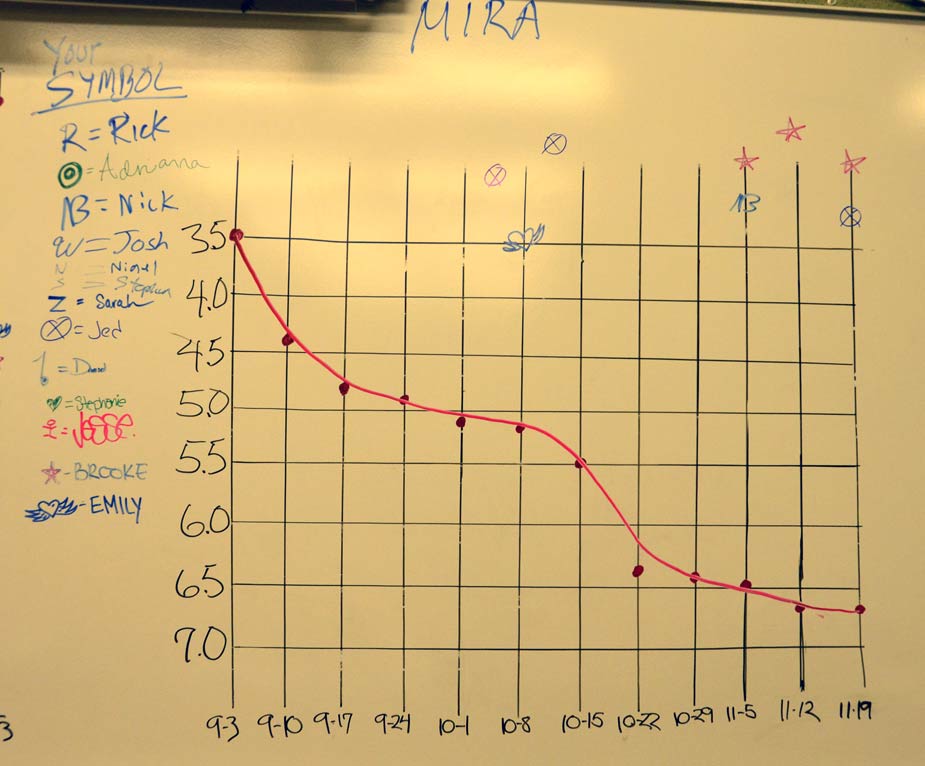 MIRA
Your
SYMBOL
R = Rick
= Adrianna
NB = Nick
W = Josh
N = Nigel
S = Stephen
Z = Sarah
= Jed
= Stephanie
= JESSE.
- BROOKE
- EMILY
NB
3.5
4.0
4.5
5.0
5.5
6.0
6.5
7.0
9-3 9-10 9-17 9-24 10-1 10-8 10-15 10-22 10-29 11-5 11-12 11-19